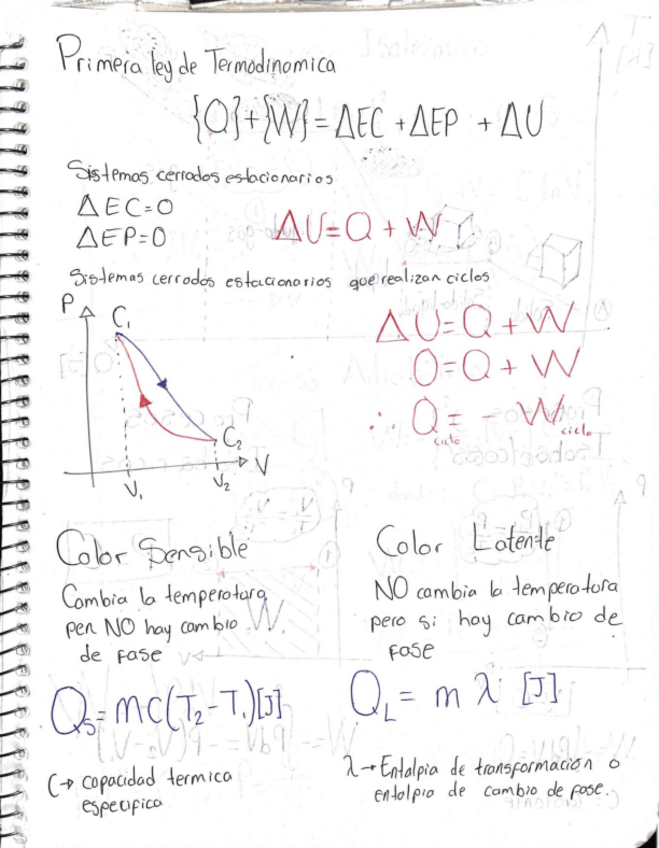 Primera ley de Termodinomica
{Q}+{W}=ΔEC+ΔEP+ΔU
Sistemas cerrados estacionarios
ΔEC=0
ΔEP=0
ΔU=Q+W
Sistemas cerrados estacionarios que realizan ciclos
P
C₁
C₂
V
V₁
V₂
ΔU=Q+W
0=Q+W
∴ Q ciclo = - W ciclo
Calor Sensible
Cambia la temperatura
pero NO hay cambio
de fase
Qs=mC(T₂-T₁)[J]
C→ capacidad termica
especifica
Calor Latente
NO cambia la temperatura
pero si hay cambio de
fase
QL= m λ [J]
λ→Entalpia de transformación o
entalpia de cambio de fase.